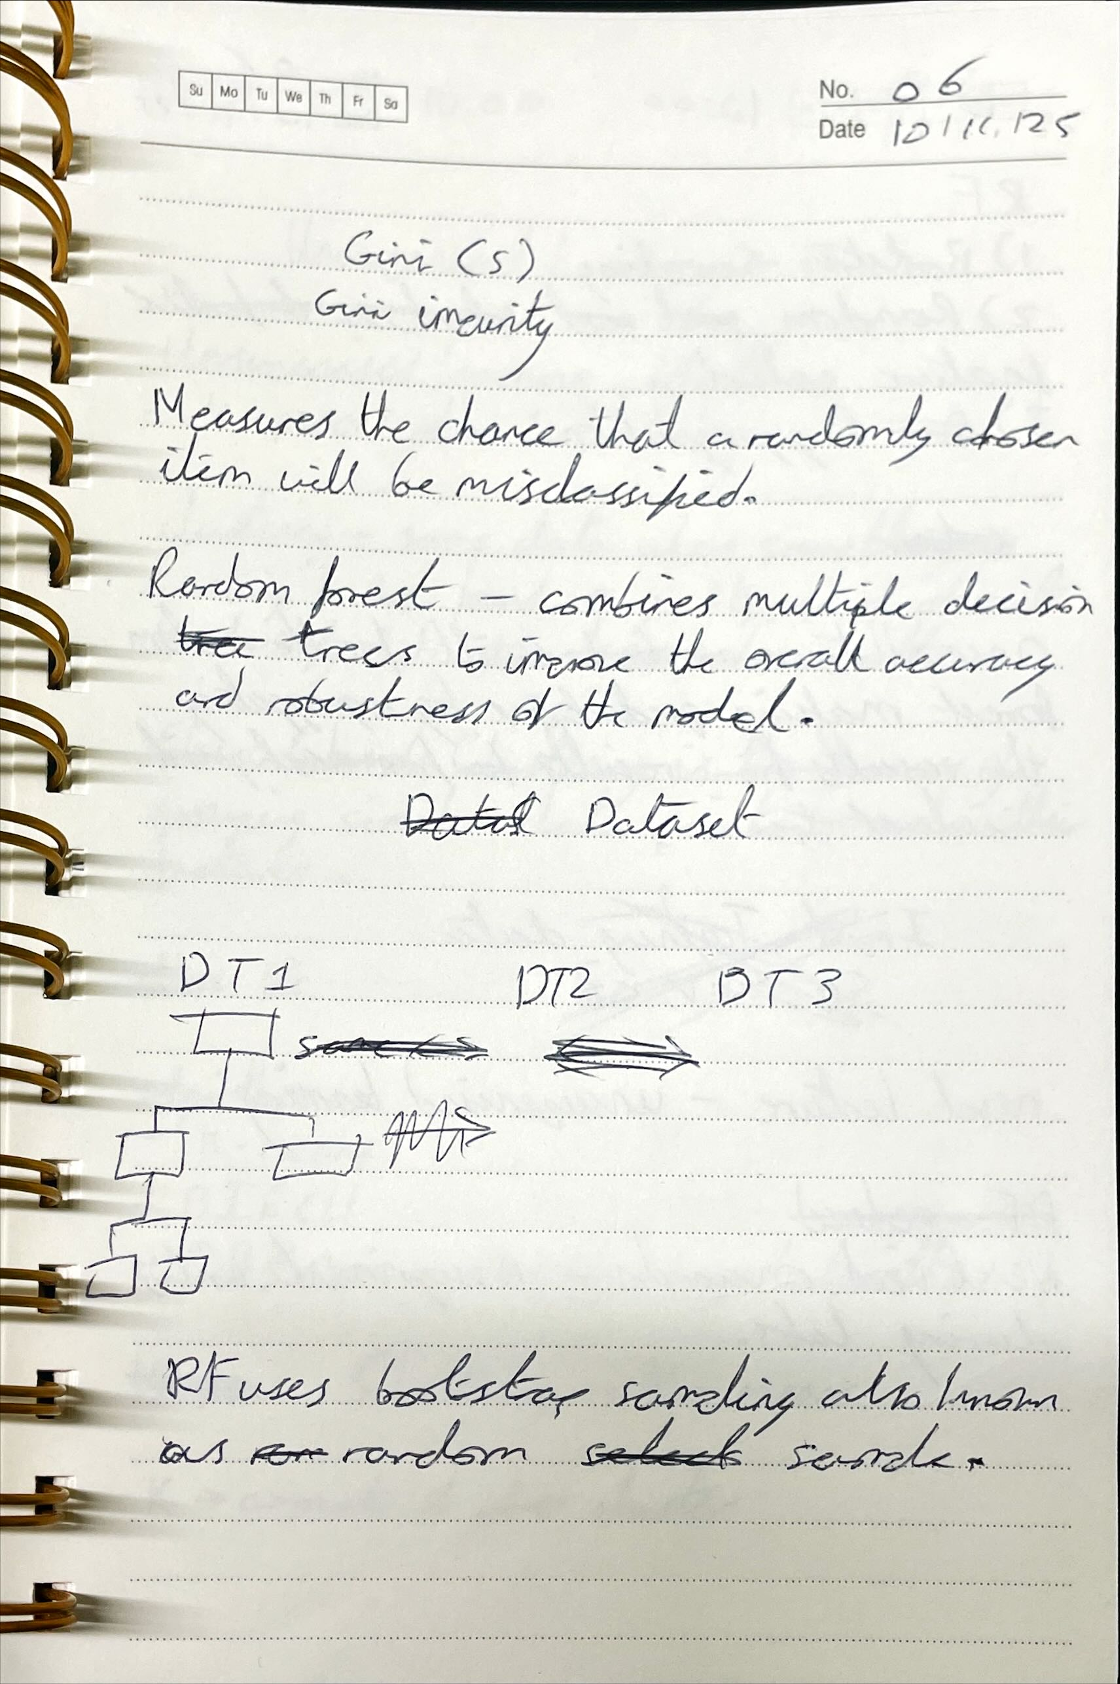 Su Mo Tu We Th Fr Sa
No. 06
Date 10/11/25
Gini (S)
Gini impurity
Measures the chance that a randomly chosen
item will be misclassified.
Random forest – combines multiple decision
trees to improve the overall accuracy
and robustness of the model.
Dataset
DT1 DT2 DT3
RF uses bootstrap sampling also known
as random sample.